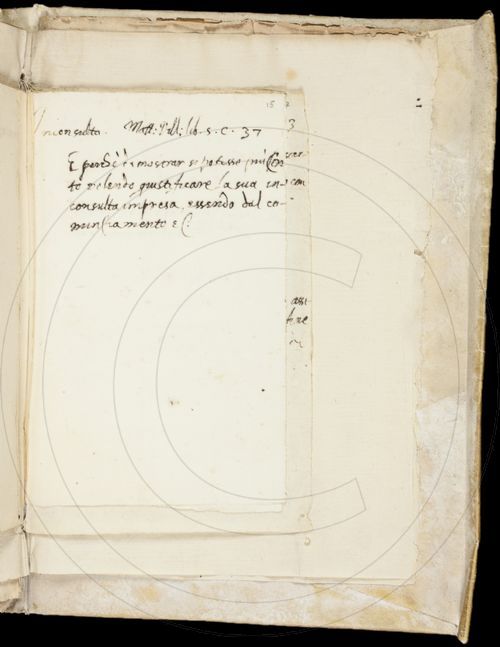 15
3
Inconsulto. Matt: Vill: lib. 5. c. 37
E perche dimostrar si potesse
to volendo giustificare la sua in-
consulta impresa, essendo dal co-
minciamento &c.
con
assi